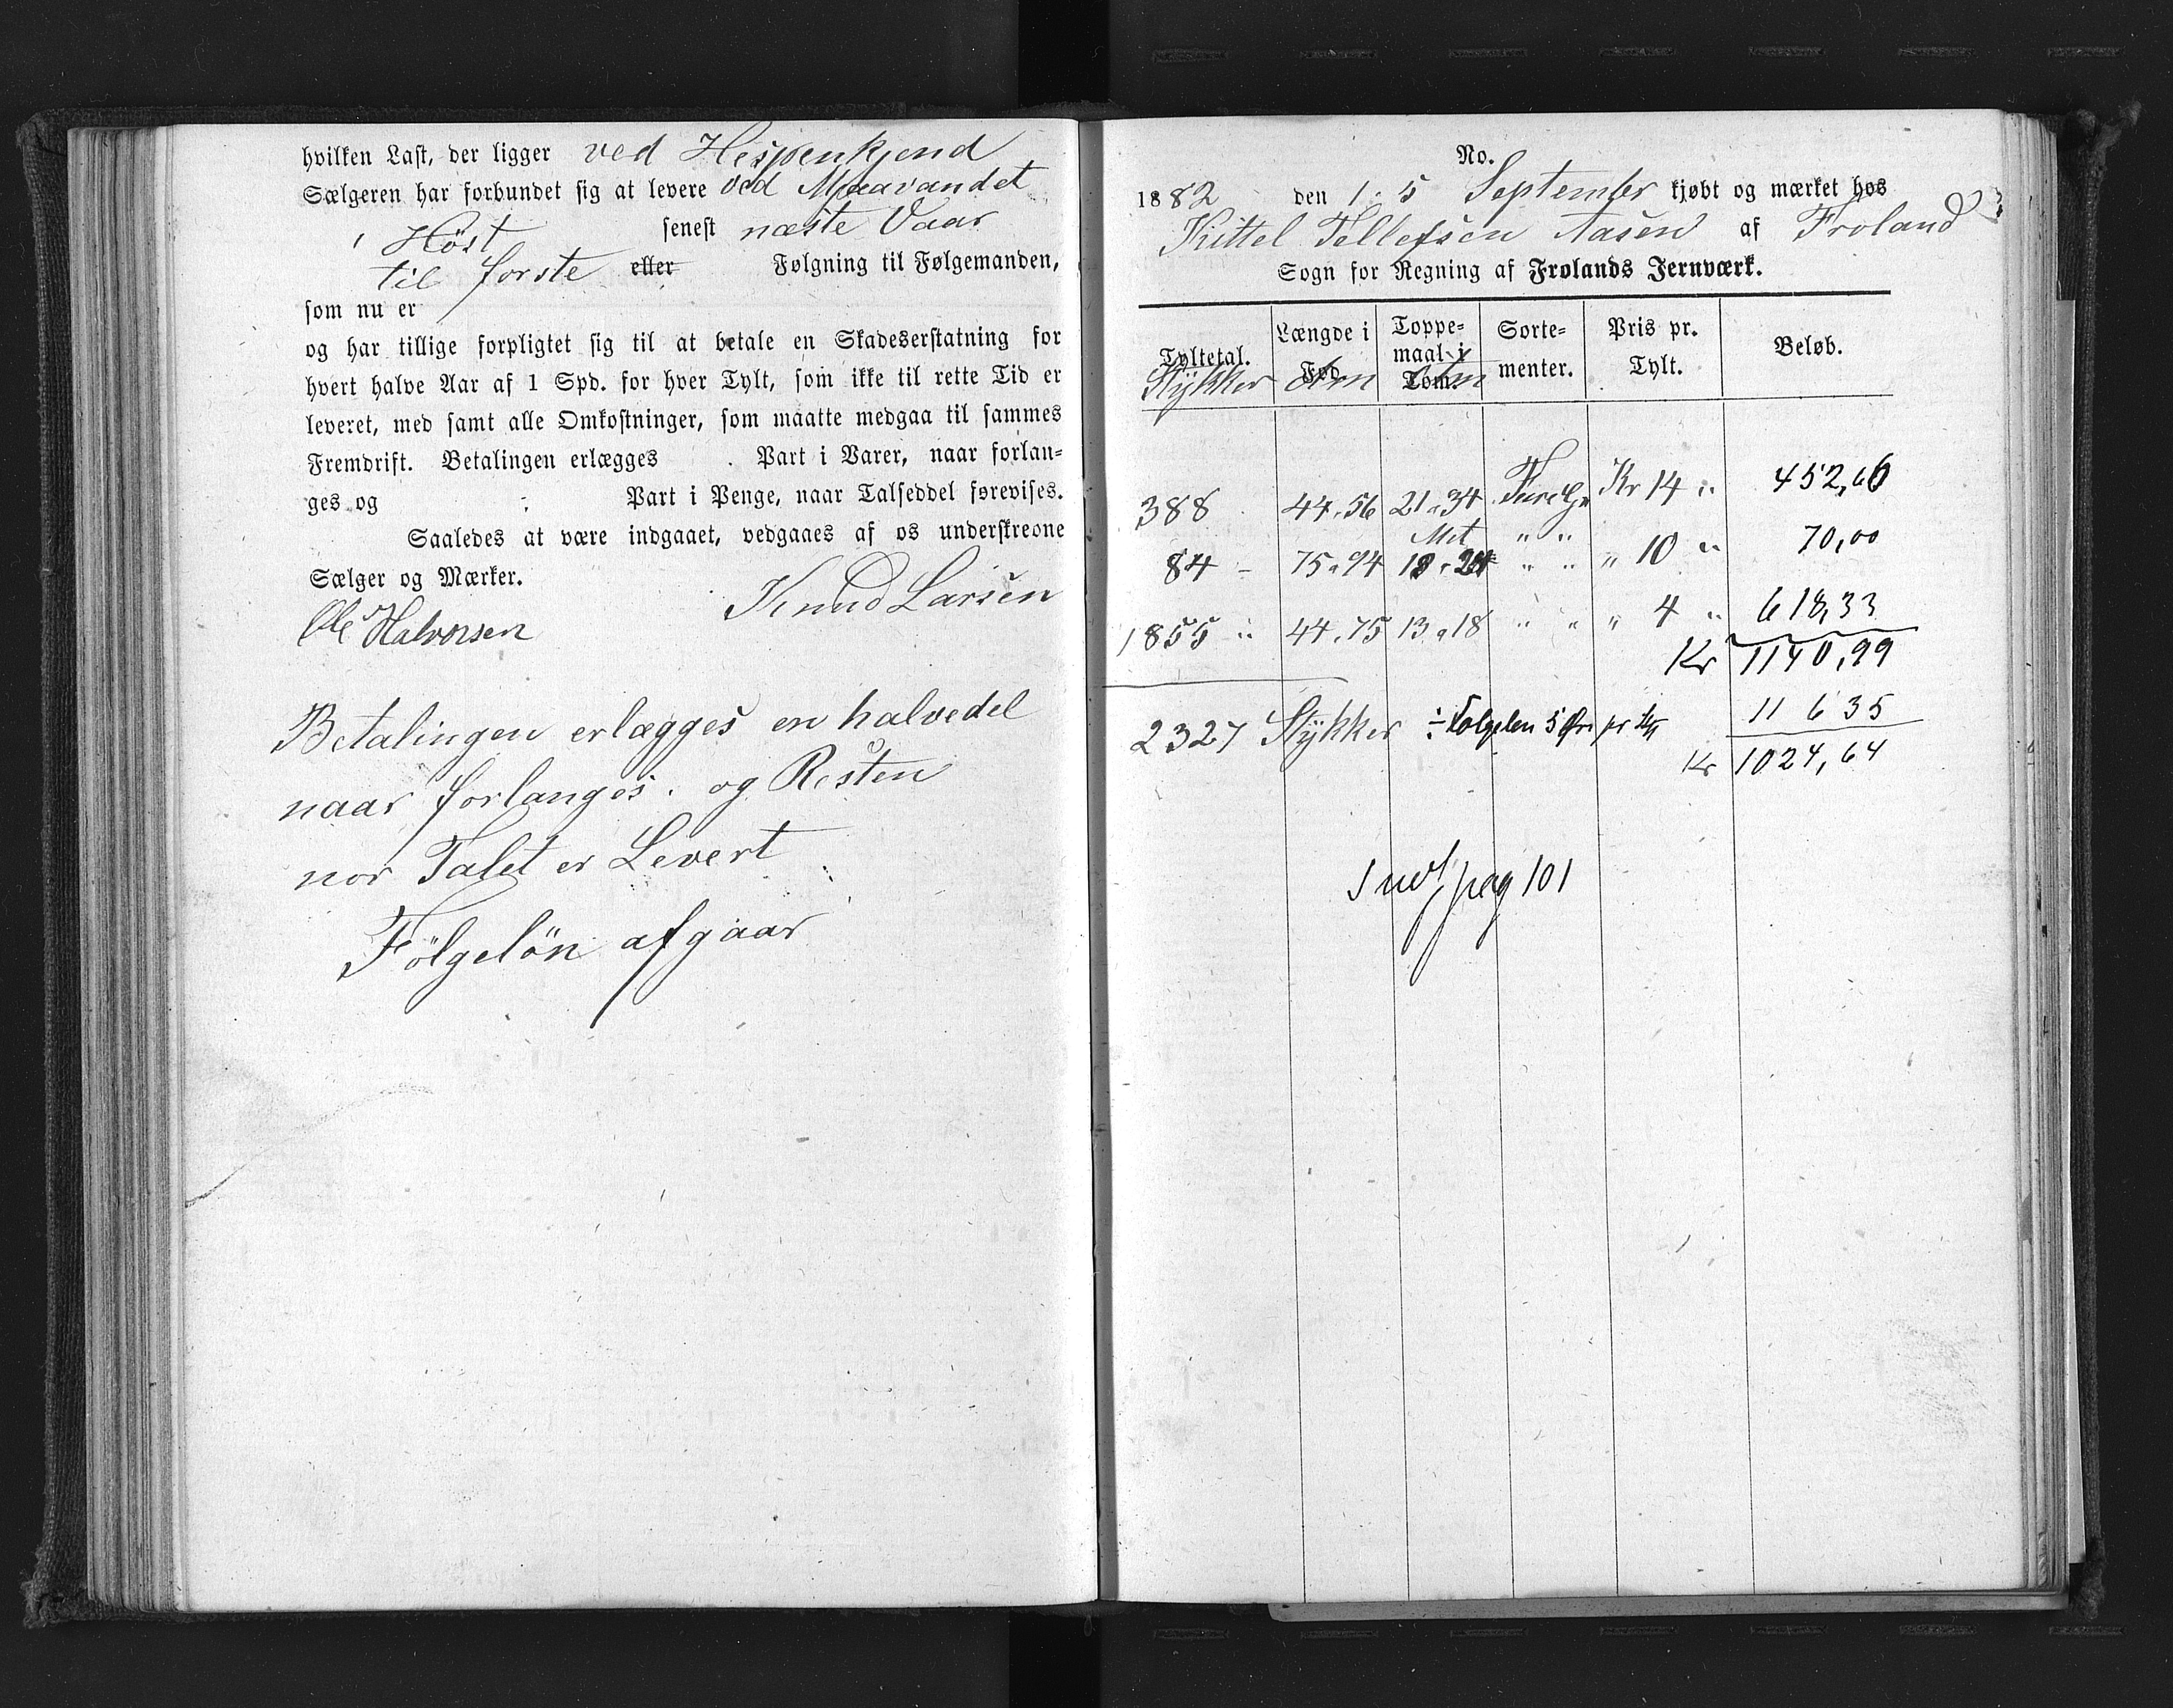 hvilken Last, der ligger ved Hespenkjend
Sælgeren har forbundet sig at levere ved Maavandet
i Höst senest næste Vaar
til forste eller Følgning til Følgemanden,
som nu er
og har tillige forpligtet sig til at betale en Skadeserstatning for
hvert halve Aar af 1 Spd. for hver Tylt, som ikke til rette Tid er
leveret, med samt alle Omkostninger, som maatte medgaa til sammes
Fremdrift. Betalingen erlægges . Part i Varer, naar forlan-
ges og Part i Penge, naar Talseddel forevises.
Saaledes at være indgaaet, vedgaaes af os underskrevne
Sælger og Mærker.
Knud Larsen
Ole Halvorsen
Betalingen erlægges en halvedel
naar forlanges. og Resten
nor Talet er Levert
Fölgelön afgaar
No.
1882 den 1. 5 September kjøbt og mærket hos
Kittel Tellefsen Aasen af Froland
Sogn for Regning af Frolands Jernværk.
Tyltetal. Længde i Fod. Toppe-maal i Tom. Sorte-menter. Pris pr. Tylt. Beløb.
Stykker
388 44 a 56 21 a 34 Kr 14 " 452,66
Met " "
84 - 75 a 94 " " " 10 " 70,00
1855 " 44 a 75 13 a 18 " " " 4 " 618,33
Kr 1140,99
2327 Stykker ÷ Følgeløn 5 Øre pr 11 6 35
Kr 1024,64
pag 101